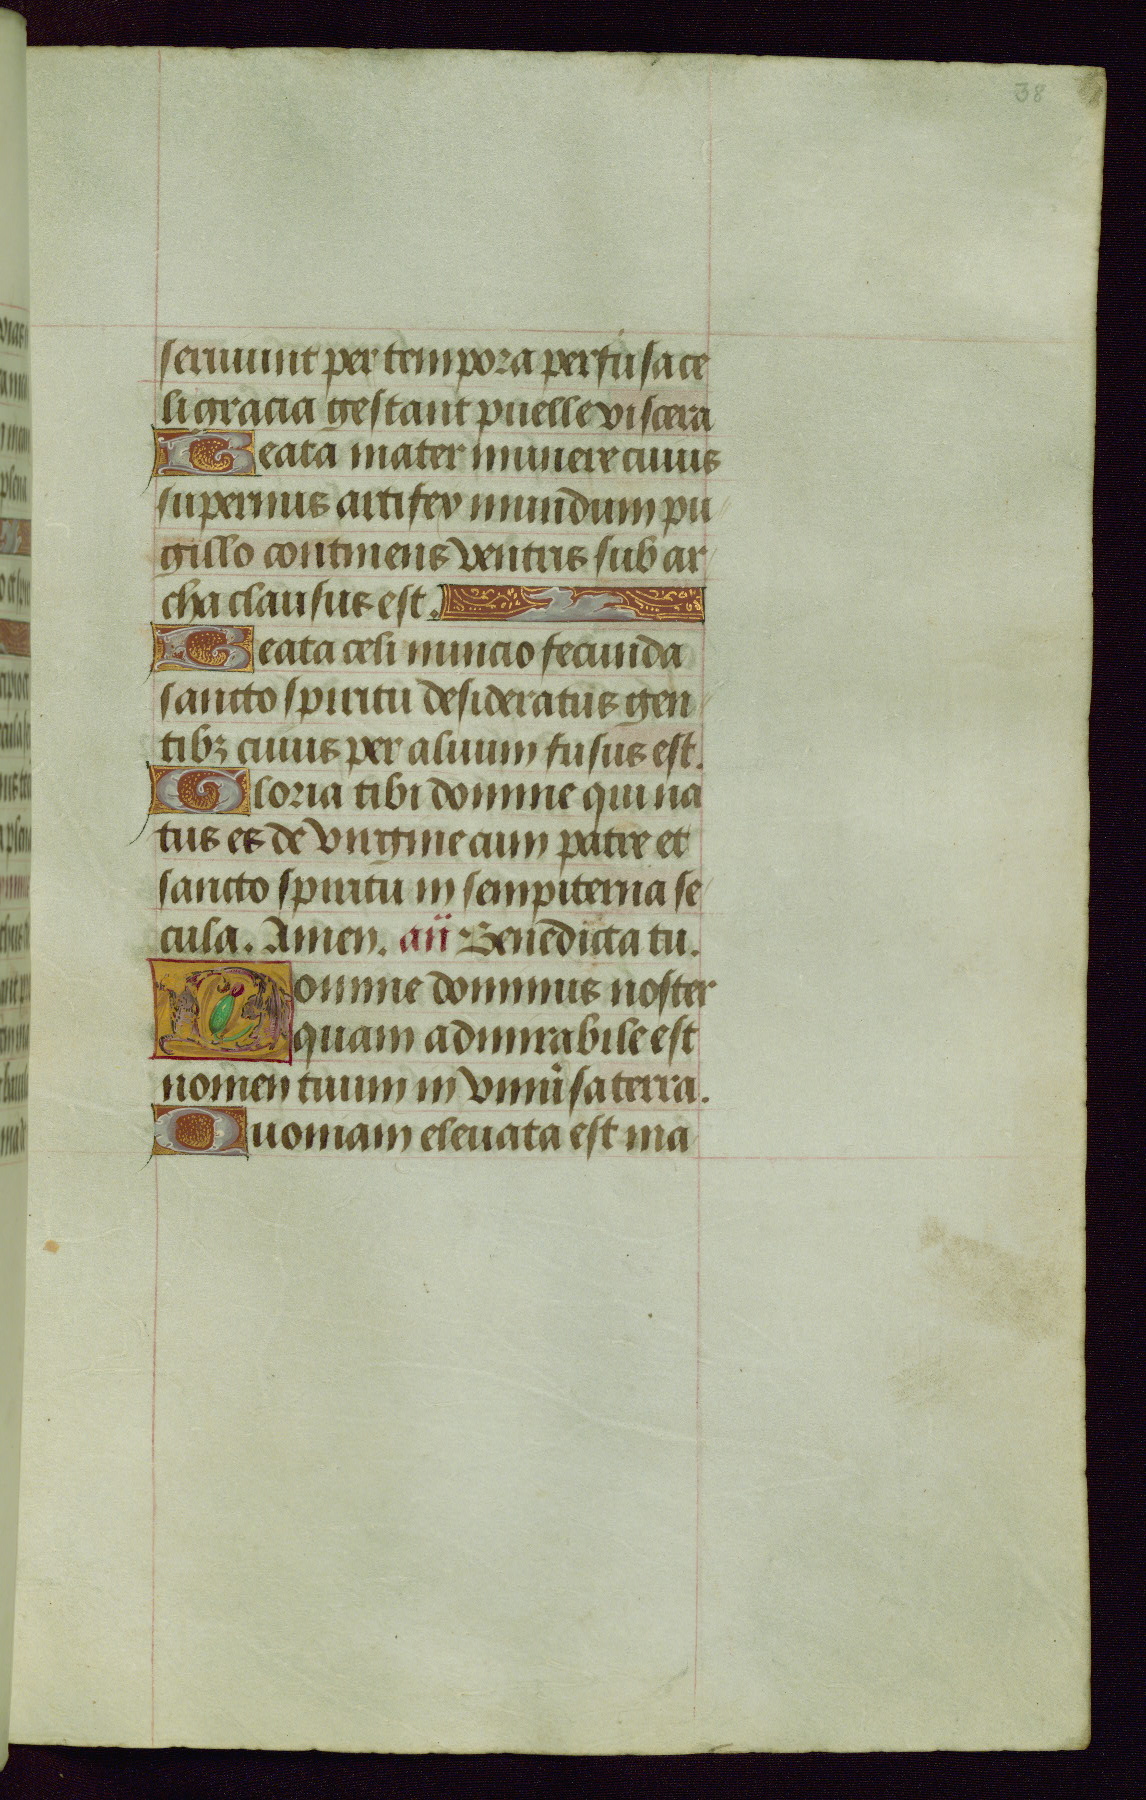 38
seruiunt per tempora perfusa ce
li gracia gestant puelle viscera
Beata mater munere cuius
supernus artifex mundum pu
gillo continens ventris sub ar
cha clausus est.
Beata celi nuncio fecunda
sancto spiritu desideratus gen
tibꝫ cuius per aluum fusus est.
Gloria tibi domine qui na
tus es de virgine cum patre et
sancto spiritu in sempiterna se
cula. Amen. añ Benedicta tu.
Domine dominus noster
quam admirabile est
nomen tuum in vniūsa terra.
Quoniam eleuata est ma